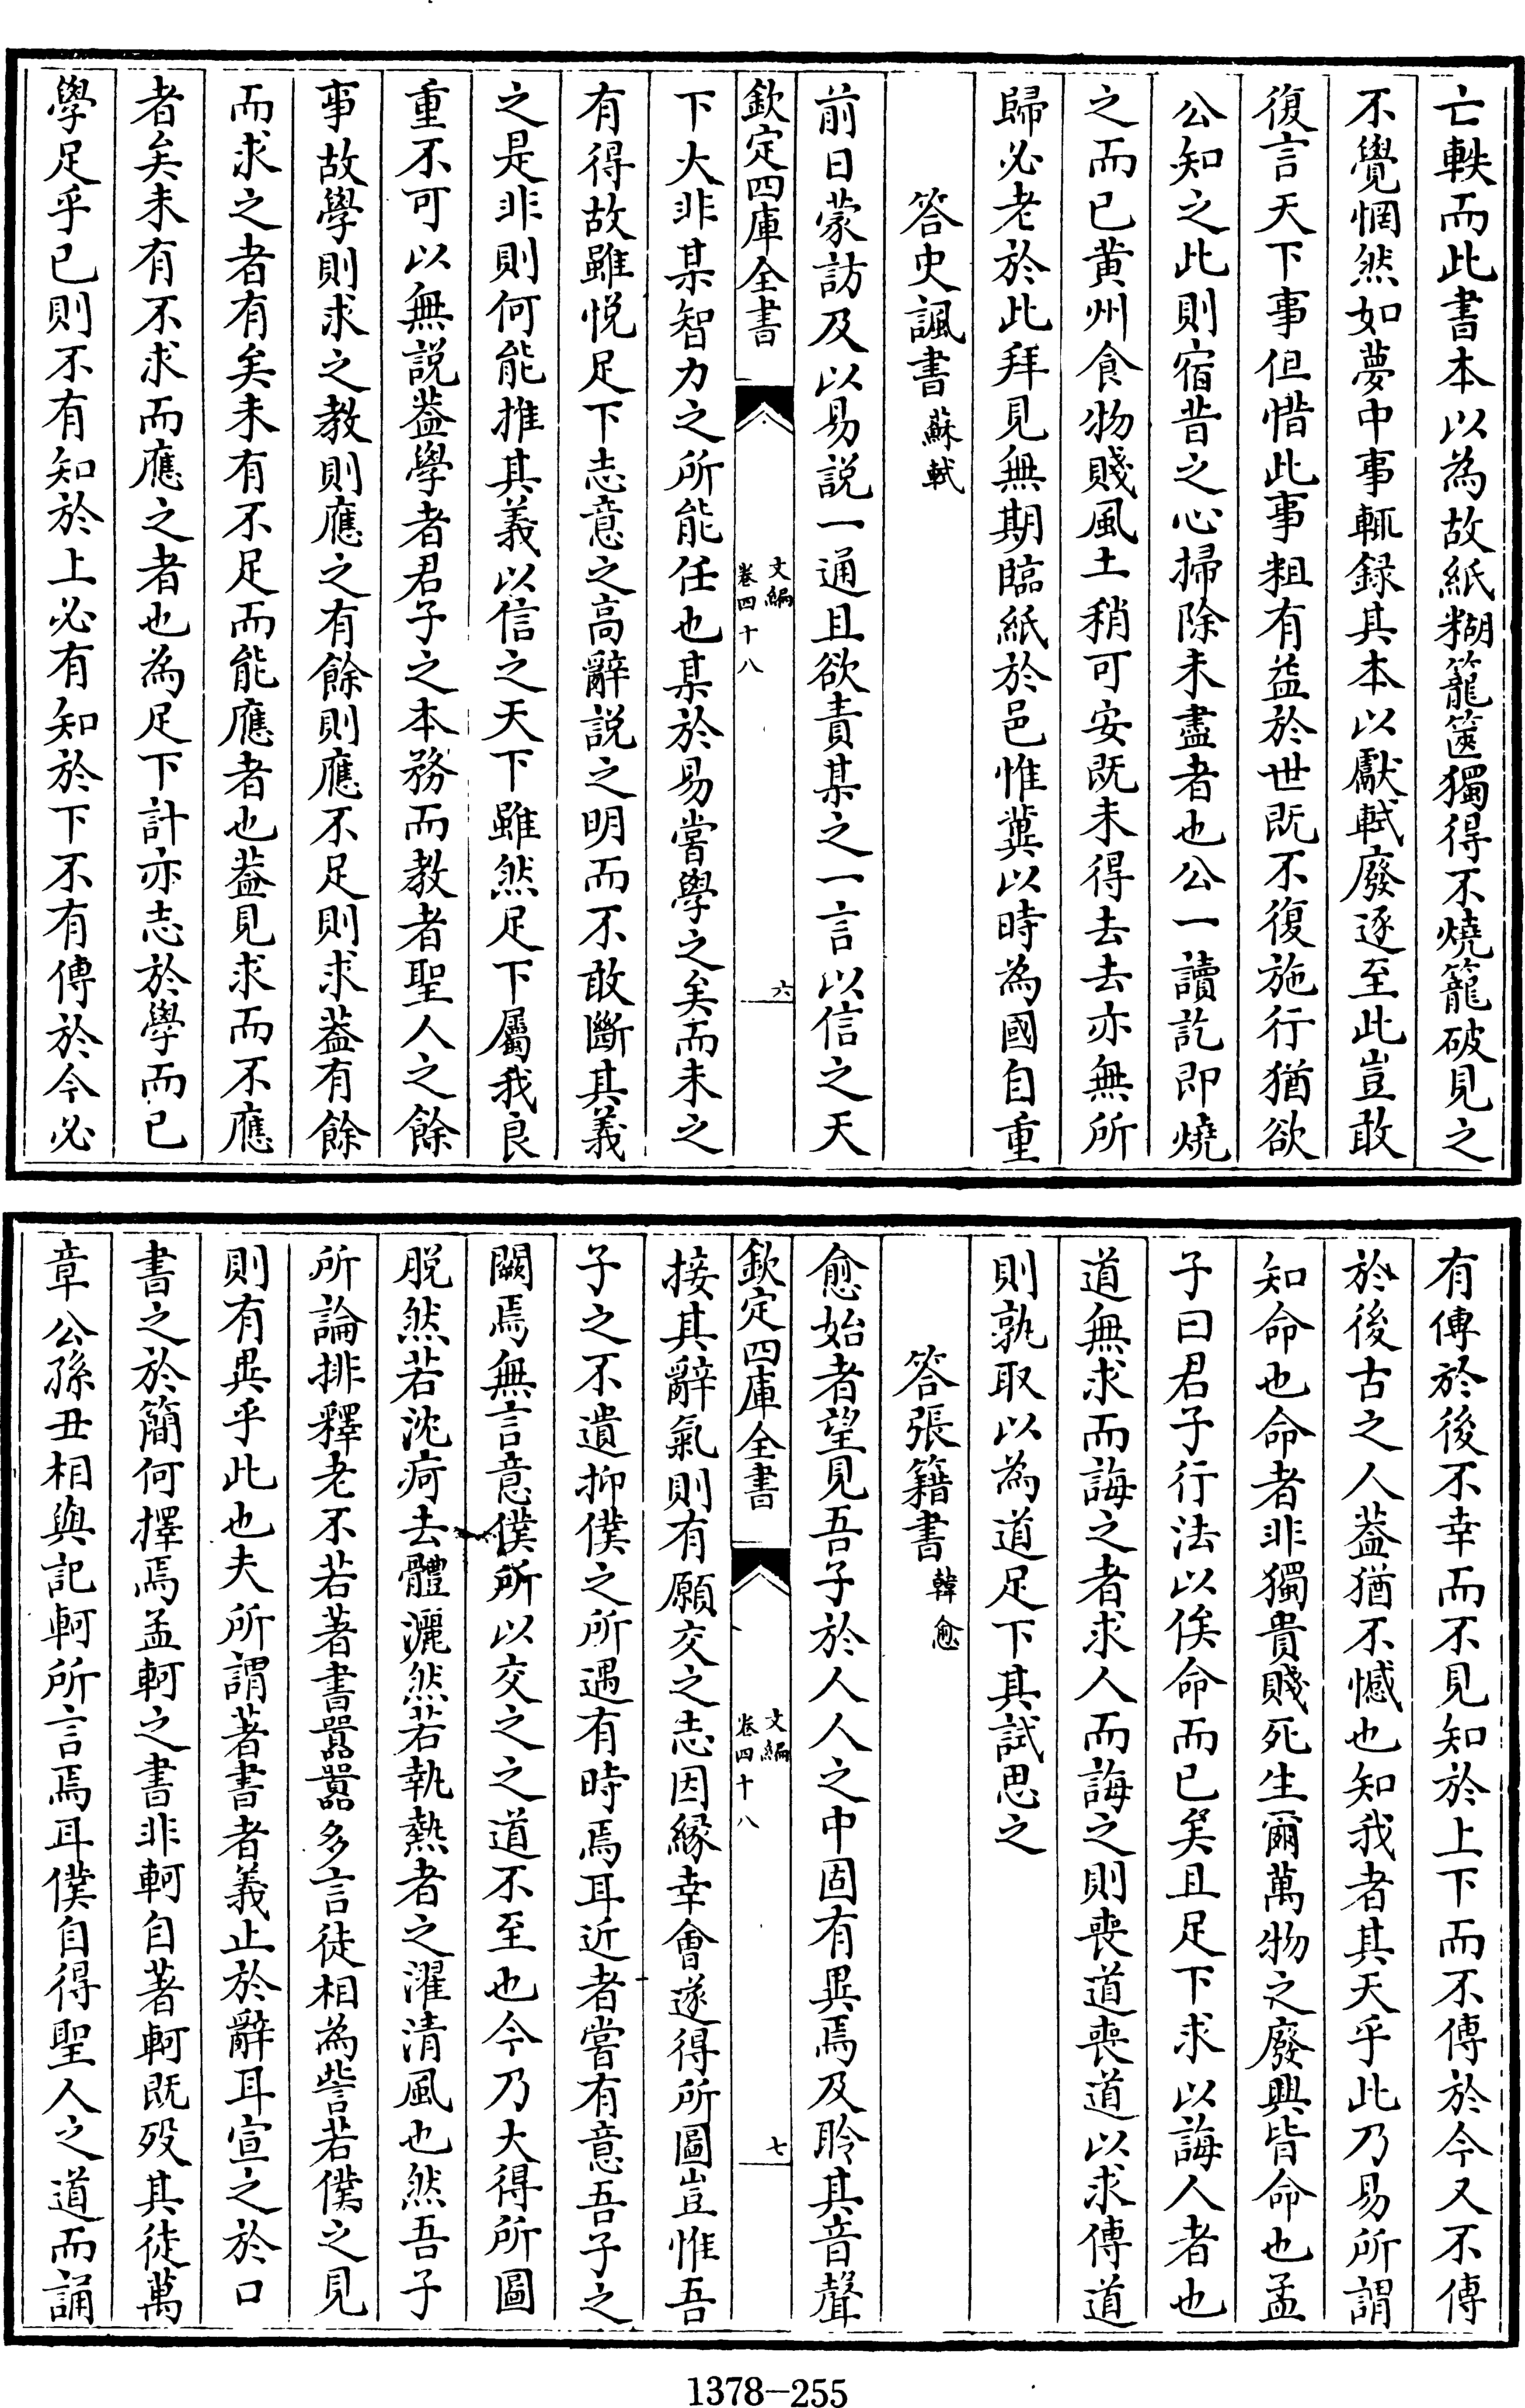 亡軼而此書本以為故紙糊籠篋獨得不燒籠破見之
不覺惘然如夢中事輒録其本以獻軾廢逐至此豈敢
復言天下事但惜此事粗有益於世既不復施行猶欲
公知之此則宿昔之心掃除未盡者也公一讀訖即燒
之而已黄州食物賤風土稍可安既未得去去亦無所
歸必老於此拜見無期臨紙於邑惟冀以時為國自重
答史諷書蘇軾
前日蒙訪及以易説一通且欲責某之一言以信之天
欽定四庫全書
文編
卷四十八
六
下大非某智力之所能任也某於易嘗學之矣而未之
有得故雖悦足下志意之高辭説之明而不敢斷其義
之是非則何能推其義以信之天下雖然足下屬我良
重不可以無説葢學者君子之本務而教者聖人之餘
事故學則求之教則應之有餘則應不足則求葢有餘
而求之者有矣未有不足而能應者也葢見求而不應
者矣未有不求而應之者也為足下計亦志於學而已
學足乎已則不有知於上必有知於下不有傳於今必
有傳於後不幸而不見知於上下而不傳於今又不傳
於後古之人葢猶不憾也知我者其天乎此乃易所謂
知命也命者非獨貴賤死生爾萬物之廢興皆命也孟
子曰君子行法以俟命而已矣且足下求以誨人者也
道無求而誨之者求人而誨之則喪道喪道以求傳道
則孰取以為道足下其試思之
答張籍書韓愈
愈始者望見吾子於人人之中固有異焉及聆其音聲
欽定四庫全書
文編
卷四十八
七
接其辭氣則有願交之志因緣幸會遂得所圖豈惟吾
子之不遺抑僕之所遇有時焉耳近者嘗有意吾子之
闕焉無言意僕所以交之之道不至也今乃大得所圖
脱然若沈疴去體灑然若執熱者之濯清風也然吾子
所論排釋老不若著書囂囂多言徒相為訾若僕之見
則有異乎此也夫所謂著書者義止於辭耳宣之於口
書之於簡何擇焉孟軻之書非軻自著軻既殁其徒萬
章公孫丑相與記軻所言焉耳僕自得聖人之道而誦
1378-255